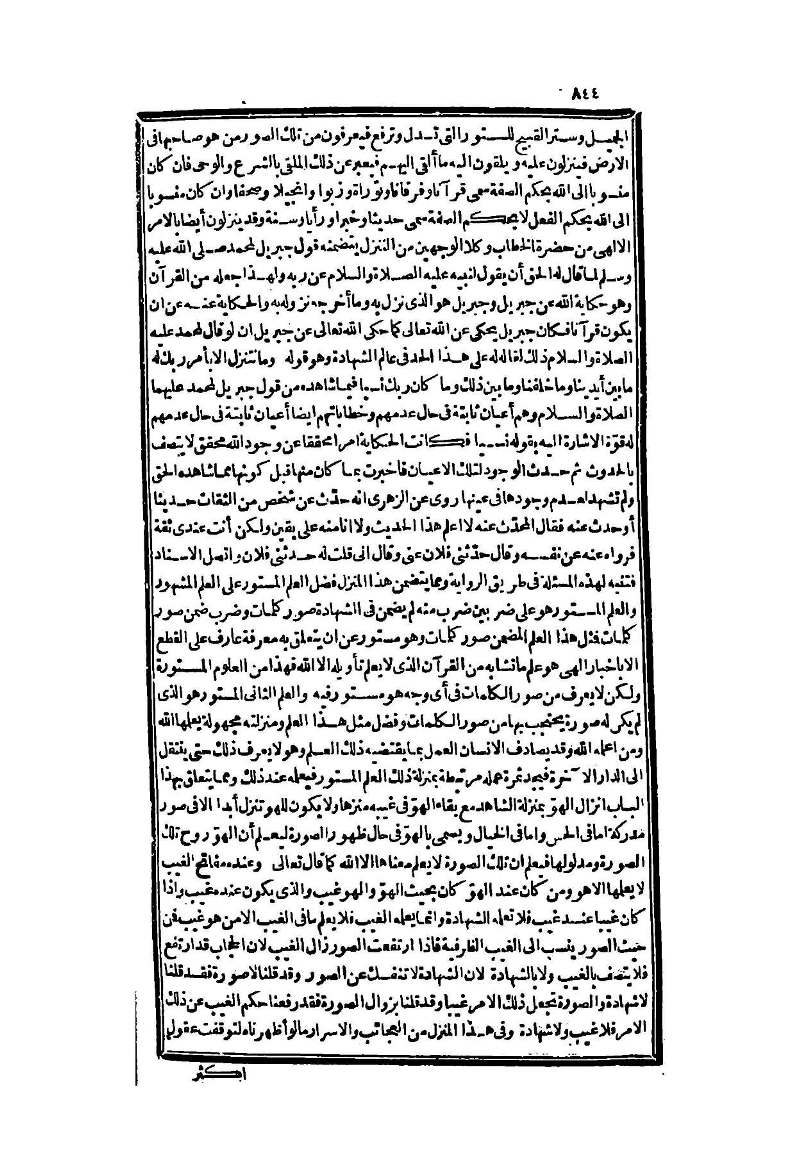 ٨٤٤
الجميل وستر القبيح للستور التي تسدل وترفع فيعرفون من تلك الصور من هو صاحبها في
الارض فينزلون عليه ويلقون اليه ما ألقى اليهم فيعبر عن ذلك الملقى بالشرع والوحى فان كان
منسوبا الى الله بحكم الصفة سمى قرآنا وفرقانا وتوراة وزبورا وانجيلا وصحفا وان كان منسوبا
الى الله بحكم الفعل لا بحكم الصفة سمى حديثا وخبرا ورأيا وسنة وقد ينزلون أيضا بالامر
الالهى من حضرة الخطاب وكلا الوجهين من التنزل يتضمنه قول جبريل لمحمد صلى الله عليه
وسلم لما قال له الحق أن يقول لنبيه عليه الصلاة والسلام عن ربه ولهذا جعله من القرآن
وهو حكاية الله عن جبريل وجبريل هو الذى نزل به وما أخرجه نزوله به والحكاية عنه عن ان
يكون قرآنا فكان جبريل يحكى عن الله تعالى كما حكى الله تعالى عن جبريل ان لو قال لمحمد عليه
الصلاة والسلام ذلك لقاله له على هذا الحد فى عالم الشهادة وهو قوله وما نتنزل الا بأمر ربك له
ما بين أيدينا وما خلفنا وما بين ذلك وما كان ربك نسيا فيما شاهده من قول جبريل لمحمد عليهما
الصلاة والسلام وهم أعيان ثابتة فى حال عدمهم وخطاباتهم ايضا أعيان ثابتة فى حال عدمهم
له قوة الاشارة اليه بقوله نسيا فكانت الحكاية امرا محققا عن وجود الله محقق لا يتصف
بالحدوث ثم حدث الوجود لتلك الاعيان فأخبرت بما كان منها قبل كونها مما شاهده الحق
ولم تشهد لعدم وجودها فى عينها روى عن الزهرى انه حدث عن شخص من الثقات حديثا
أوحدث عنه فقال المحدث عنه لا اعلم هذا الحديث ولا انا منه على يقين ولكن أنت عندى ثقة
فرواه عنه عن نفسه وقال حدثنى فلان عنى وقال انى قلت له حدثنى فلان واتصل الاسناد
فتنبه لهذه المسئلة فى طريق الرواية ومما يتضمن هذا المنزل فضل العلم المستور على العلم المشهور
والعلم المستور هو على ضربين ضرب منه لم يضمن فى الشهادة صور كلمات وضرب ضمن صور
كلمات فمثل هذا العلم المضمن صور كلمات وهو مستور عن ان يتعلق به معرفة عارف على القطع
الا باخبار الهى هو علم ما تشابه من القرآن الذى لا يعلم تأويله الا الله فهذا من العلوم المستورة
ولكن لا يعرف من صور الكلمات فى أى وجه هو مستور فيه والعلم الثانى المستور هو الذى
لم يكن له صورة يحتجب بها من صور الكلمات وفضل مثل هذا العلم ومنزلته مجهولة يعلمها الله
ومن اعلمه الله وقد يصادف الانسان العمل بما يقتضيه ذلك العلم وهو لا يعرف ذلك حتى ينتقل
الى الدار الآخرة فيجد ثمرة عمله مرتبطة بمنزلة ذلك العلم المستور فيعلمه عند ذلك ومما يتعلق بهذا
الباب انزال الهو بمنزلة الشاهد مع بقاء الهو فى غيبه منزها ولا يكون للهو تنزل أبدا الا فى صور
مدركة اما فى الحس واما فى الخيال ويسمى بالهو فى حال ظهور الصورة ليعلم أن الهو روح تلك
الصورة ومدلولها فيعلم ان تلك الصورة لا يعلم معناها الا الله كما قال تعالى وعنده مفاتح الغيب
لا يعلمها الا هو ومن كان عند الهو كان بحيث الهو والهو غيب والذى يكون عنده غيب واذا
كان غيبا عند غيب فلا تعلمه الشهادة وانما يعلمه الغيب فلا يعلم ما فى الغيب الا من هو غيب فمن
حيث الصور ينسب الى الغيب الظرفية فاذا ارتفعت الصور زال الغيب لان الحجاب قد ارتفع
فلا يتصف بالغيب ولا بالشهادة لان الشهادة لا تنفك عن الصور وقد قلنا لا صورة فقد قلنا
لا شهادة والصورة تجعل ذلك الامر غيبا وقد قلنا بزوال الصورة فقد رفعنا حكم الغيب عن ذلك
الامر فلا غيب ولا شهادة وفى هذا المنزل من العجائب والاسرار ما لو أظهرناه لتوقفت عقول
اكثر